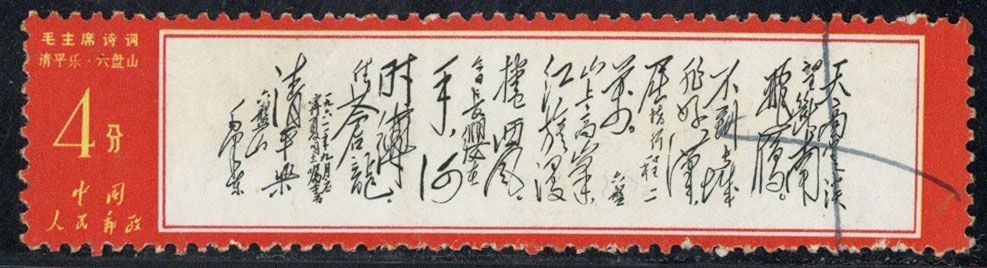 毛主席诗词
清平乐·六盘山
4分
中国
人民邮政
天高云淡
望断南
飞雁。
不到长城
非好汉
屈指行程二
万。六盘
山上高峯,
红旗漫
捲西风。
今日长缨在
手,何
时缚
住苍龙。
一九六一年九月应
宁夏同志嘱书
清平乐
六盘山
毛泽东